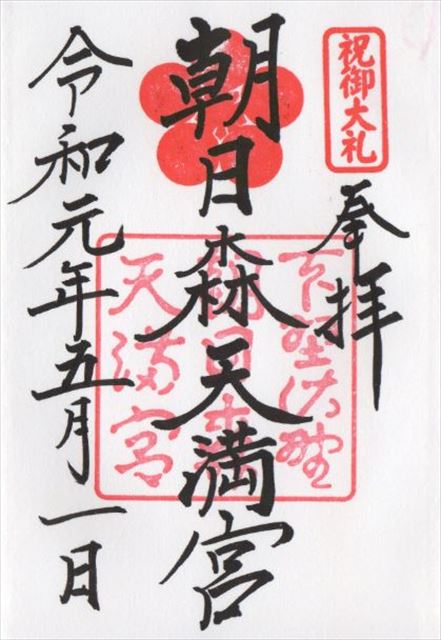 祝御大礼
奉拝
朝日森天満宮
下野佐野
朝日森
天満宮
令和元年五月一日